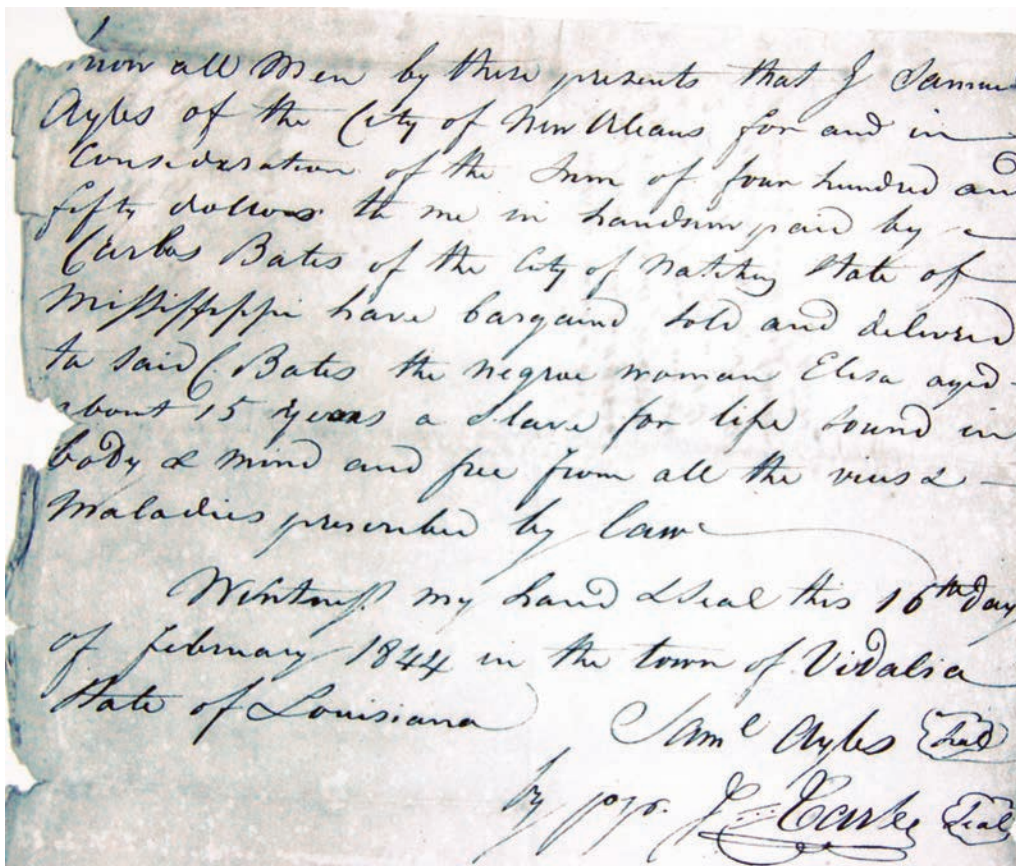 know all Men by these presents that I Samuel
Ayles of the City of New Orleans for and in
Consideration of the Sum of four hundred and
fifty dollars to me in hand paid by
Carlos Bates of the City of Natchez State of
Mississippi have bargaind sold and delivered
to said C. Bates the negroe woman Elisa aged
about 15 years a Slave for life sound in
body & mind and free from all the vices &
Maladies prescribed by law
Wittness my hand & Seal this 16th day
of February 1844 in the town of Vidalia
State of Louisiana
Saml Ayles Seal
by J Seal